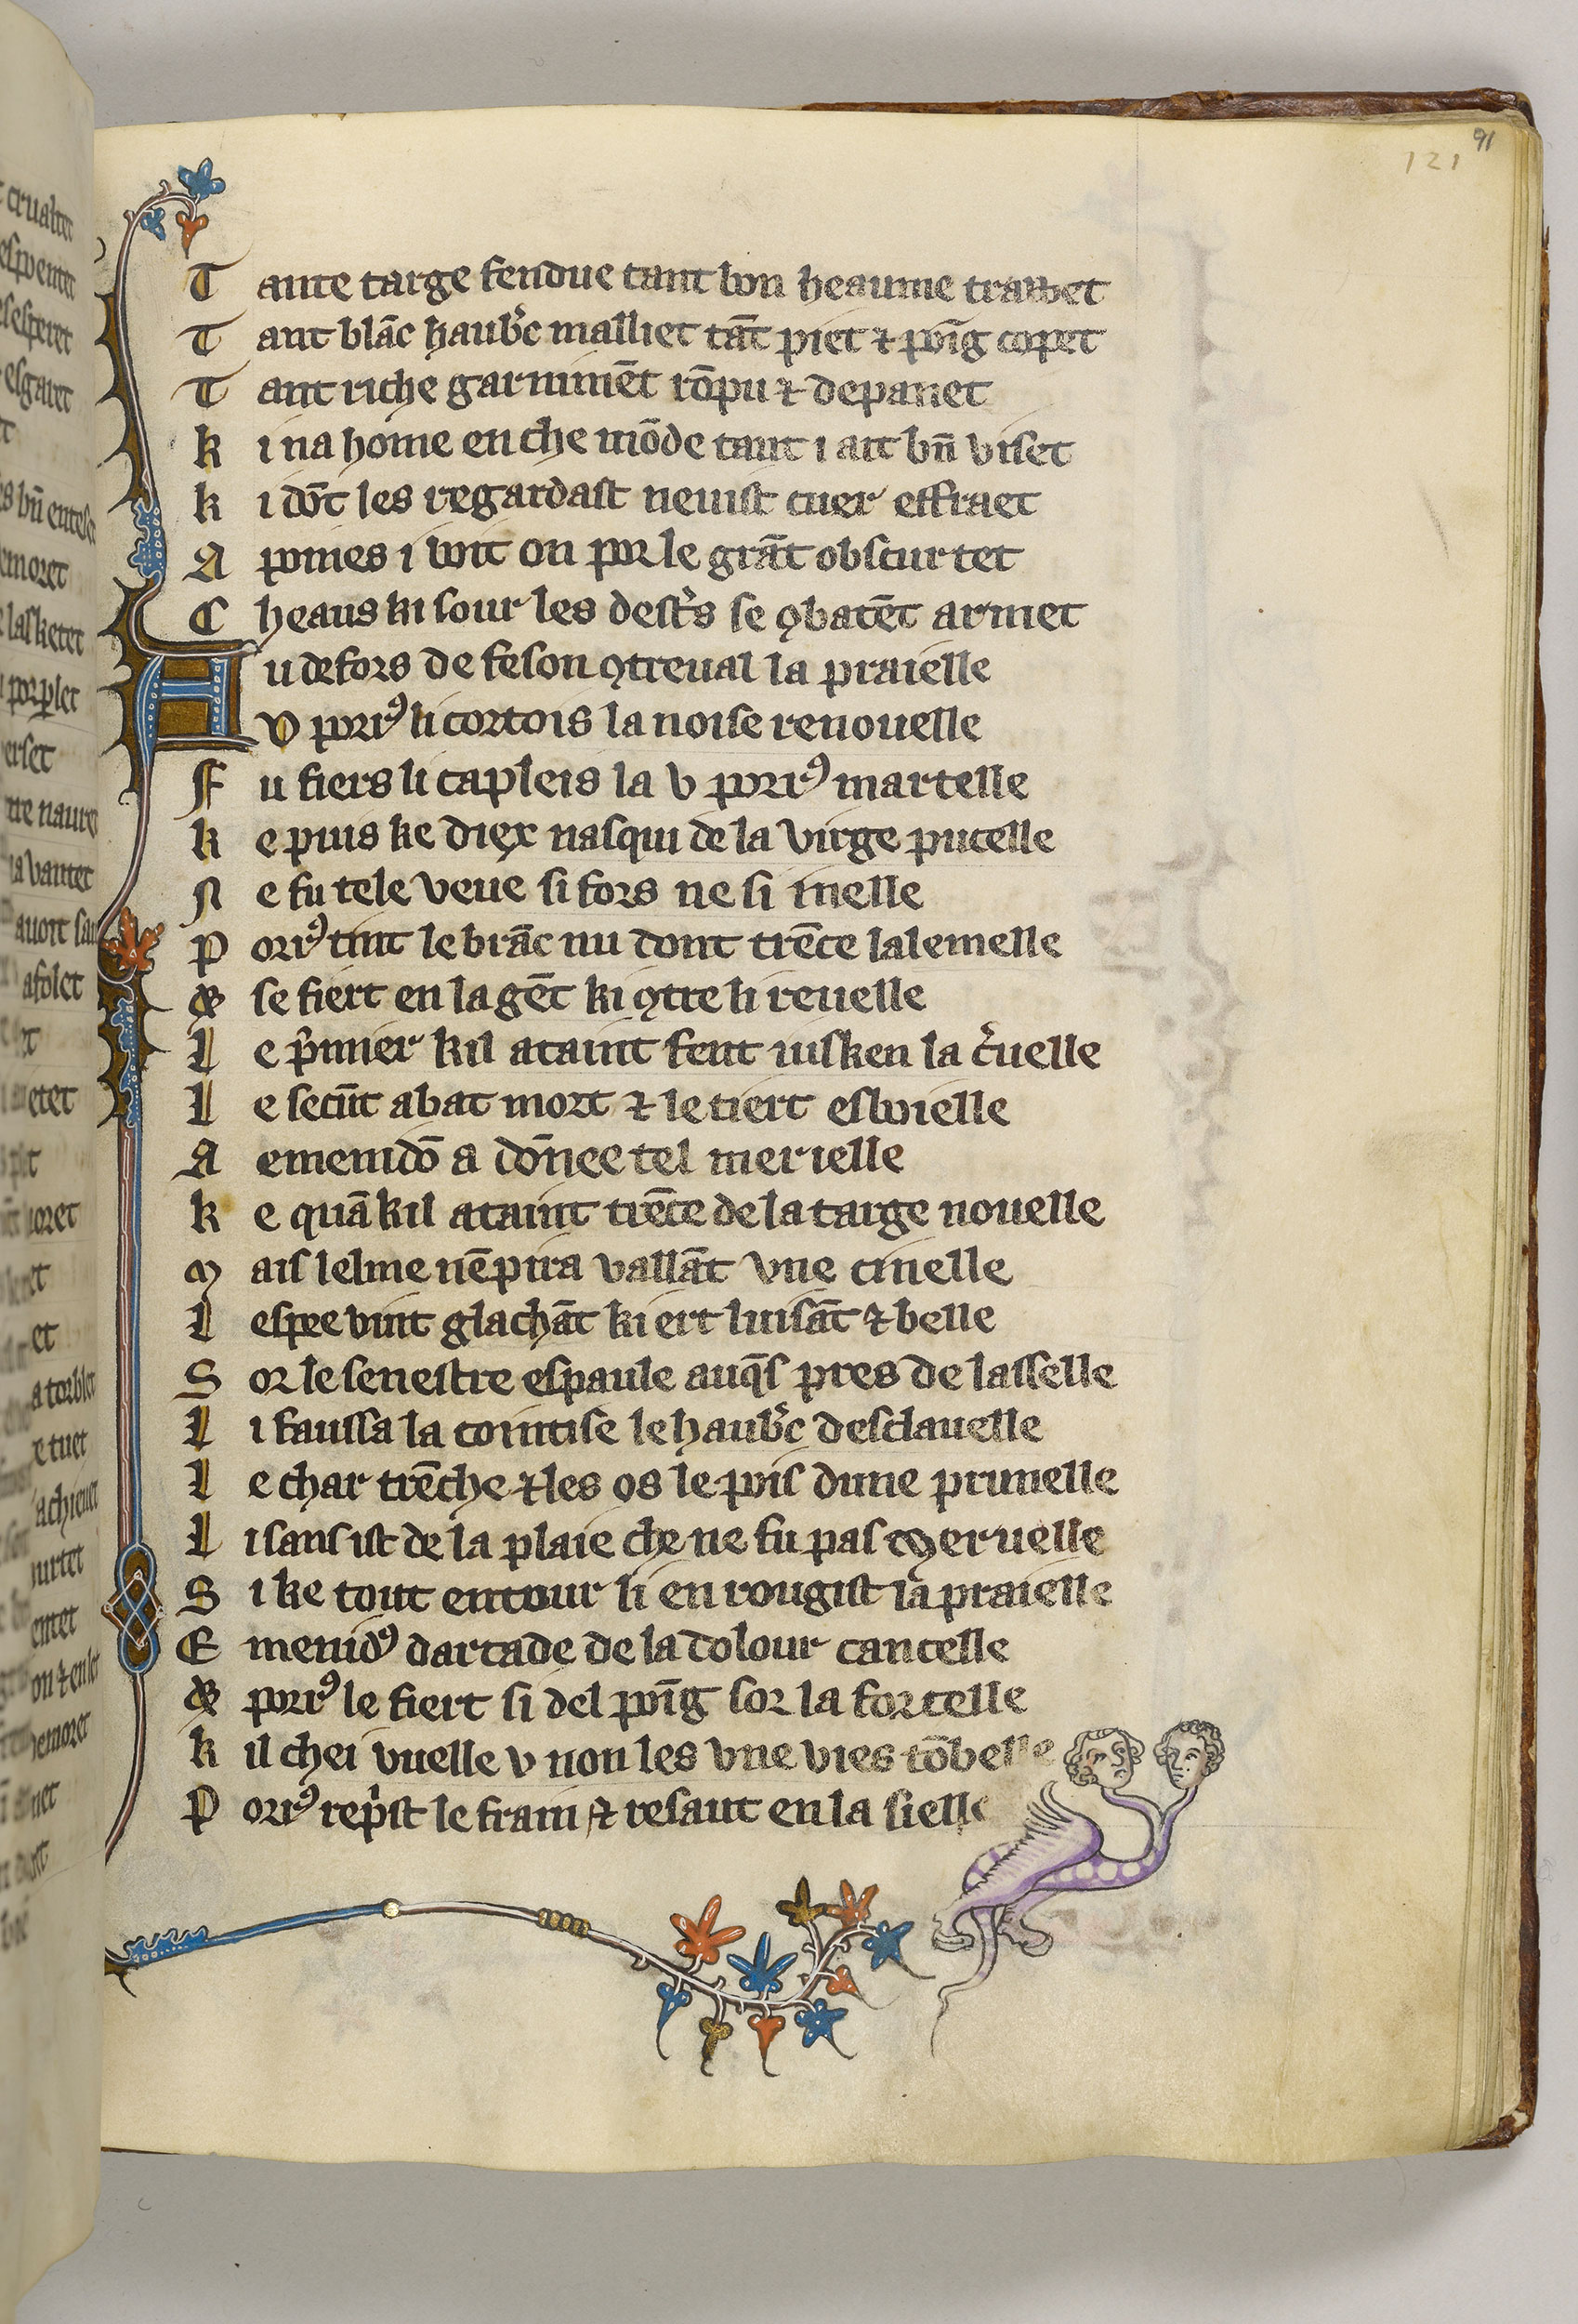 91
121
Tante targe fendue tant bon heaume trawet
Tant blāc haub'c malliet tāt piet ⁊ poīg copet
Tant riche garnimēt rōpu ⁊ depanet
ki na home en che mōde tant i ait bn̄ viset
ki dōt les regardast neuist cuer effraet
A poines i voit on por le grāt obscurtet
Cheaus ki sour les dest's se ꝯbatēt armet
Au defors de feson ꝯtreual la praielle
V porrꝰ li cortois la noise renouelle
Fu fiers li capleis la v porrꝰ martelle
ke puis ke diex nasqui de la virge pucelle
Ne fu tele veue si fors ne si inelle
Porrꝰ tint le brāc nu dont trēce lalemelle
& se fiert en la gēt ki ꝯtre li reuelle
Le p'mier kil ataint fent iusken la c'uelle
Le secūt abat mort ⁊ le tiert esboielle
A emenidō a dōnee tel merielle
ke quā kil ataint trēce de la targe nouelle
Mais lelme nēpira vallāt vne cinelle
Lespee vint glachāt ki ert luisāt ⁊ belle
Sor le senestre espaule auq̄s pres de lasselle
Li faussa la cointise le haub'c desclauelle
Le char trēche ⁊ les os le pois dune prunelle
Li sans ist de la plaie che ne fu pas meruelle
Si ke tout entour li en rougist la praielle
Emenidꝰ dartade de la dolour cancelle
& porrꝰ le fiert si del poīg sor la forcelle
kil chei vuelle v non les vne vies tōbelle
Porrꝰ rep'st le frain ⁊ resaut en la sielle